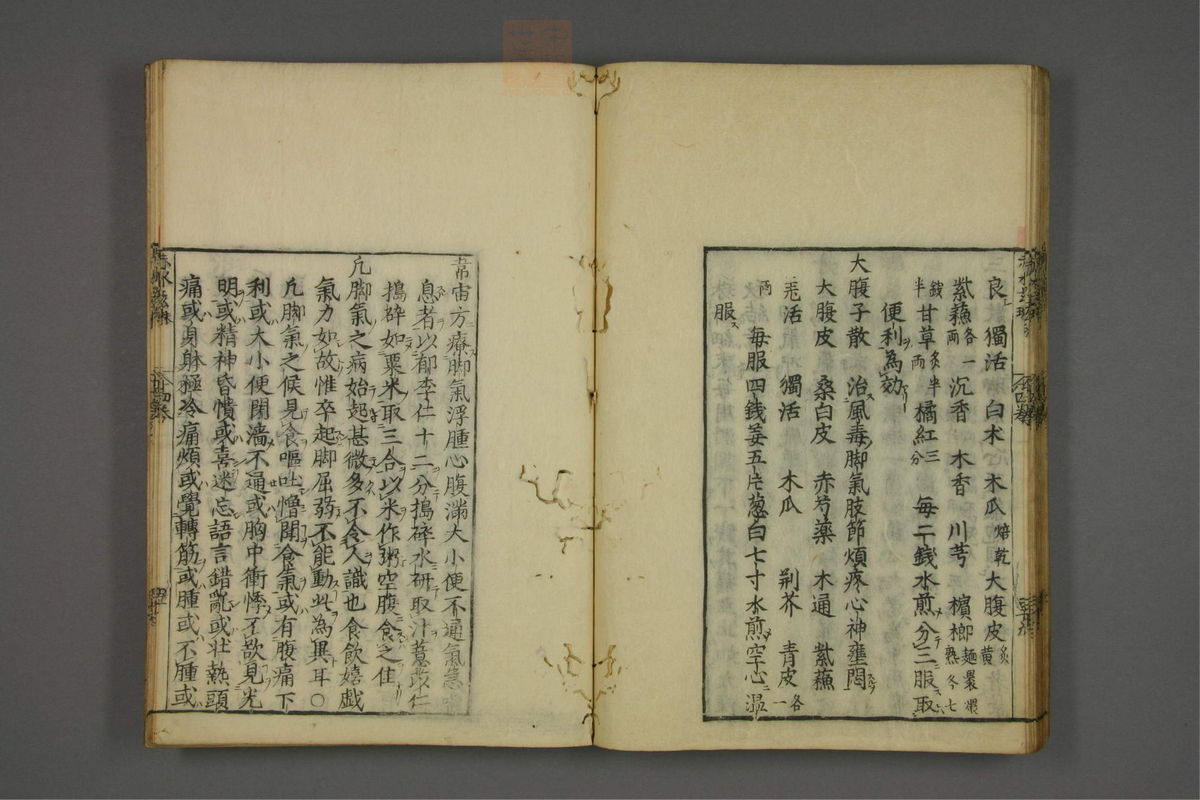 良 獨活 白朮 木瓜焙乾 大腹皮炙黄
紫蘓各一兩 沉香 木香 川芎 檳榔麵裹煨熟冬七
錢半 甘草炙半兩 橘紅三分 每二錢水煎分三服取
便利為効
大腹子散 治風毒脚氣肢節煩疼心神壅悶
大腹皮 桑白皮 赤芍藥 木通 紫蘓
羗活 獨活 木瓜 荆芥 青皮各一
兩 每服四錢姜五片葱白七寸水煎空心温
服
宙方療脚氣浮腫心腹滿大小便不通氣急
息者以郁李仁十二分搗碎水研取汁薏苡仁
搗碎如粟米取三合以米作粥空腹食之佳
凢脚氣之病始起甚微多不令人識也食飲嬉戯
氣力如故惟卒起脚屈弱不能動此為異耳○
凢脚氣之候見食嘔吐憎聞食氣或有腹痛下
利或大小便閉濇不通或胸中衝悸不欲見光
明或精神昏憒或喜迷忘語言錯亂或壮熱頭
痛或身躰極冷痛煩或覺轉筋或腫或不腫或